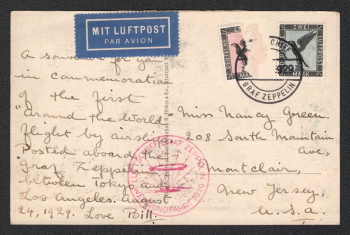 MIT LUFTPOST
PAR AVION
A souvenir for you
in commemoration
of the first
"Around the World"
flight by airship.
Posted aboard the
Graf Zeppelin
between Tokyo and
Los Angeles. August
24, 1929. Love Bill.
ZWEI
1929
GRAF ZEPPELIN
Miss Nancy Green
208 South Mountain
Ave,
Montclair,
New Jersey,
U.S.A.